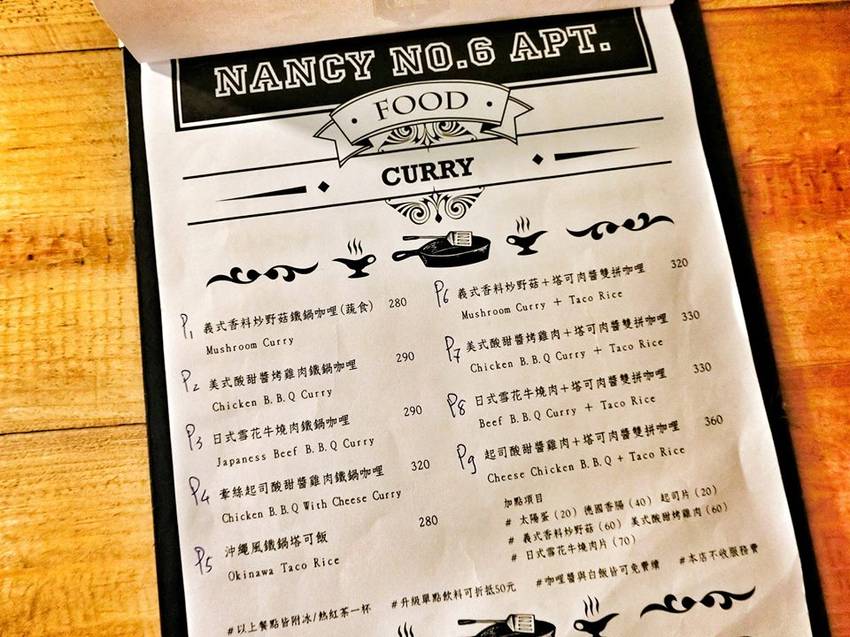 NANCY NO.6 APT.
FOOD
CURRY
P1 義式香料炒野菇鐵鍋咖哩(蔬食) 280
Mushroom Curry
P2 美式酸甜醬烤雞肉鐵鍋咖哩 290
Chicken B.B.Q Curry
P3 日式雪花牛燒肉鐵鍋咖哩 290
Japaness Beef B.B.Q Curry
P4 牽絲起司酸甜醬雞肉鐵鍋咖哩 320
Chicken B.B.Q With Cheese Curry
P5 沖繩風鐵鍋塔可飯 280
Okinawa Taco Rice
P6 義式香料炒野菇＋塔可肉醬雙拼咖哩 320
Mushroom Curry + Taco Rice
P7 美式酸甜醬烤雞肉＋塔可肉醬雙拼咖哩 330
Chicken B.B.Q Curry + Taco Rice
P8 日式雪花牛燒肉＋塔可肉醬雙拼咖哩 330
Beef B.B.Q Curry + Taco Rice
P9 起司酸甜醬雞肉＋塔可肉醬雙拼咖哩 360
Cheese Chicken B.B.Q + Taco Rice
加點項目
# 太陽蛋(20) 德國香腸(40) 起司片(20)
# 義式香料炒野菇(60) 美式酸甜烤雞肉(60)
# 日式雪花牛燒肉片(70)
#以上餐點皆附冰/熱紅茶一杯 #升級單點飲料可折抵50元 #咖哩醬與白飯皆可免費續 #本店不收服務費